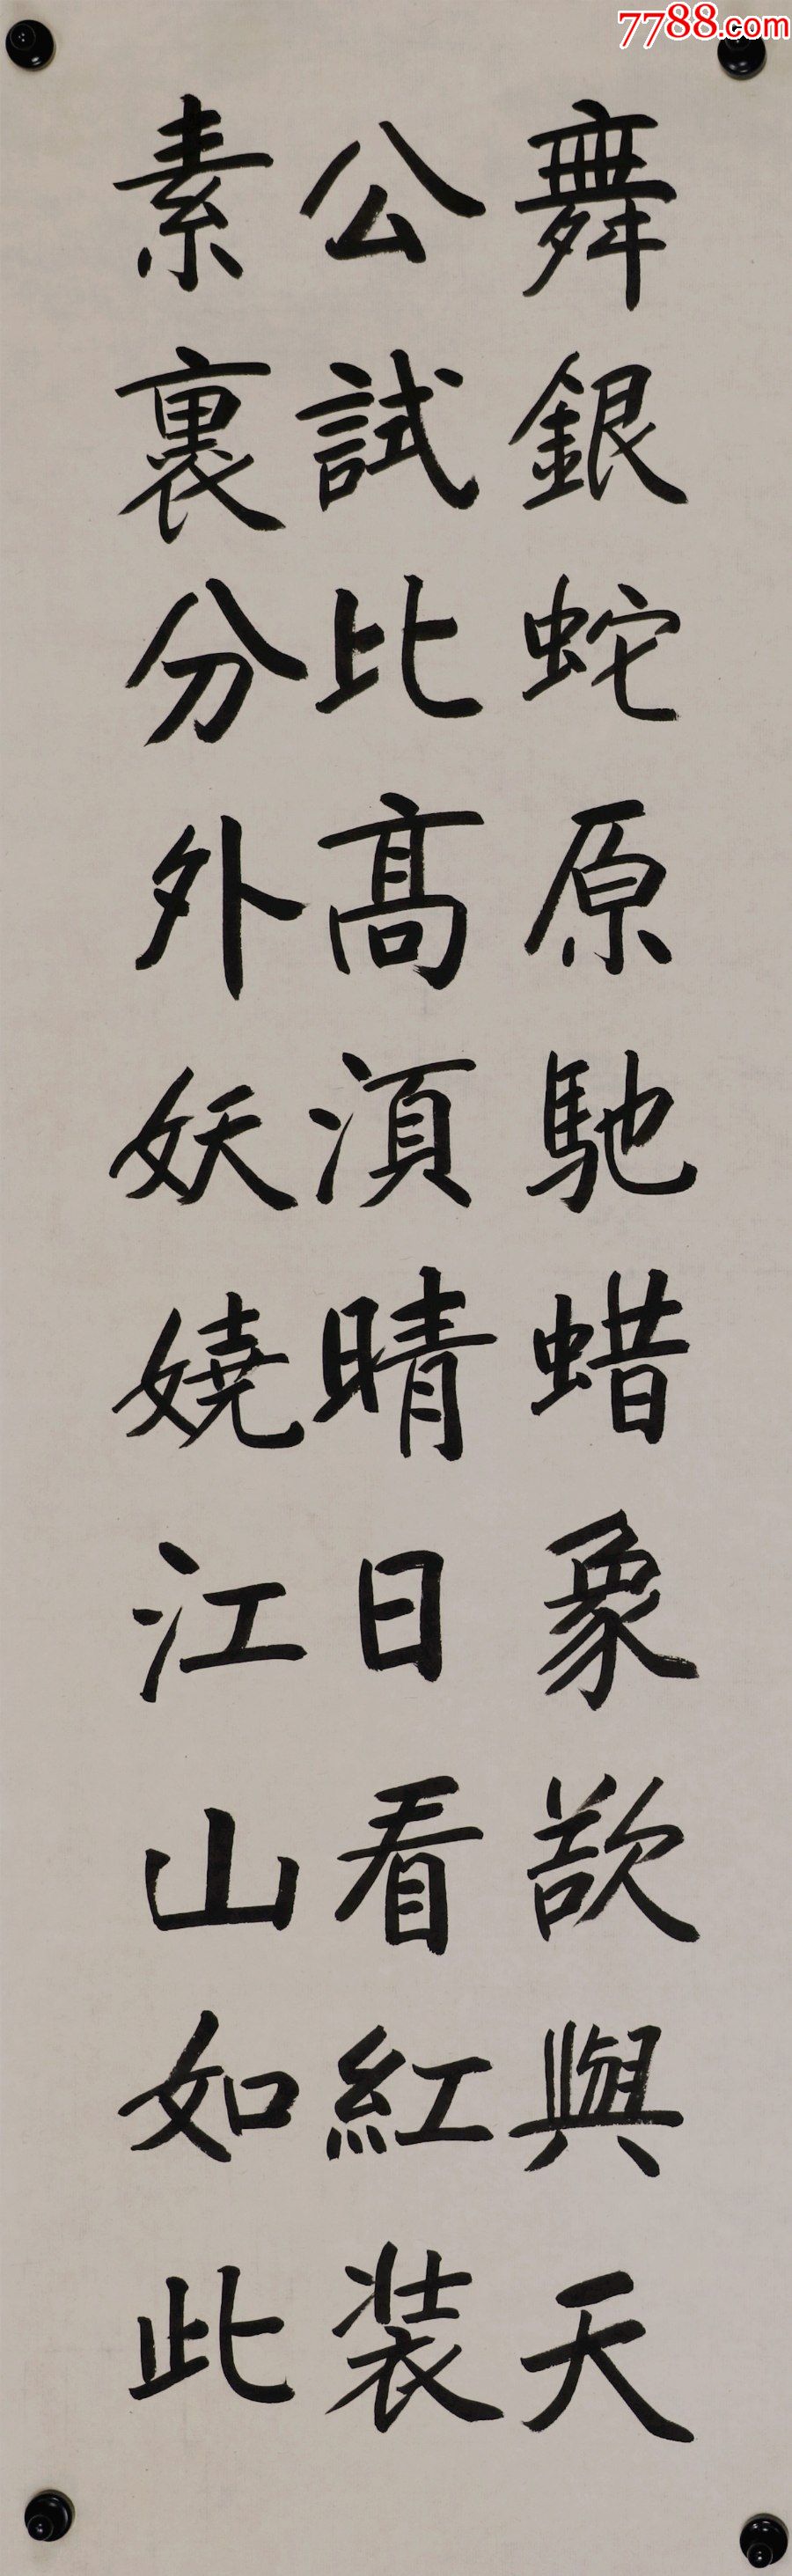 7788.com
舞銀蛇原馳蜡象欲與天
公試比高湏晴日看紅装
素裹分外妖嬈江山如此